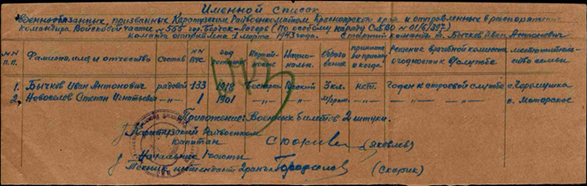 Именной список
Военнообязанных, призванных Каратузским Райвоенкоматом Красноярского края и отправленных в распоряжение
командира Войсковой части №555 гор. Бердск-Лагерь (По особому наряду СибВО № 01/6/897)
команда отправлена 1 марта 1943 года. Старший команды т. Бычков Иван Антонович
№№ п.п. Фамилия, имя и отчество Состав №№ ВУС год Партийность Национ. Образование решение врачебной комиссии о годности к службе местожительство семьи
1. Бычков Иван Антонович рядовой 133 1918 беспарт. Русский 3кл. нет. Годен к строевой службе с. Черемушка
2. Новоселов Степан Игнатьевич -"- 1 1901 -"- -"- -"- -"- с. Моторское
Приложение: Военных билетов 2 штуки.
Райвоенком
капитан (Яковлев)
Начальник I части
Техник интендант 2 ранга (Скорик)